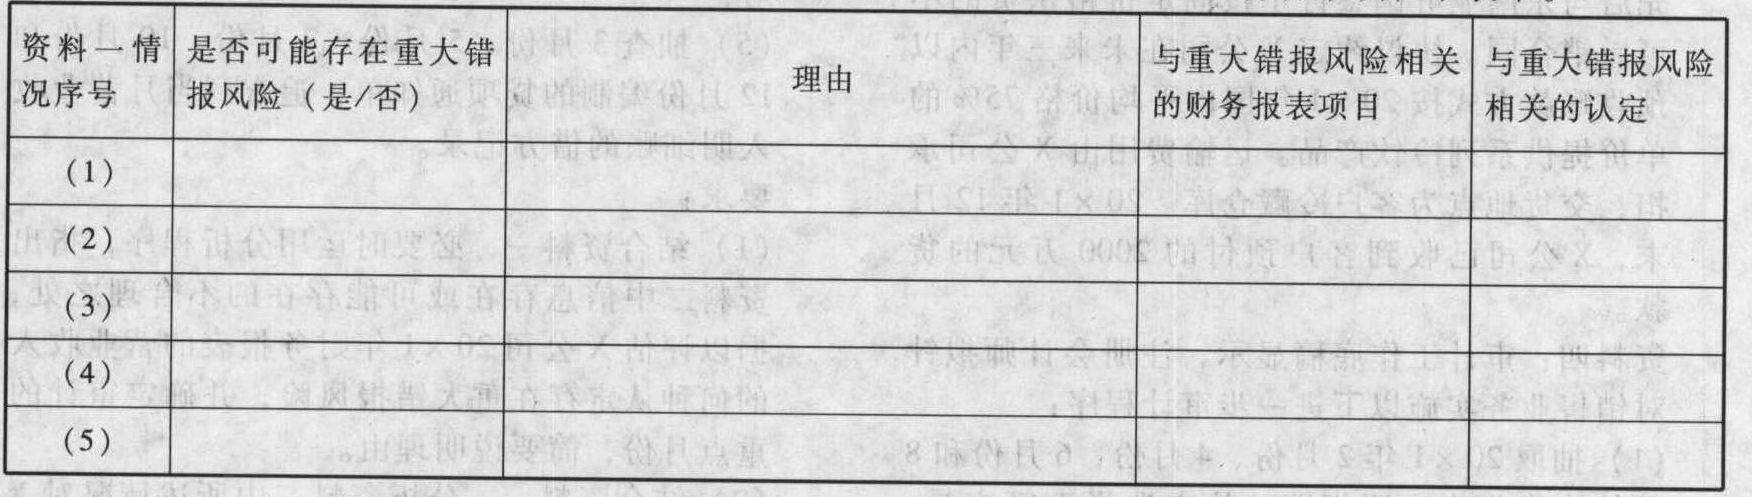 资料一情况序号
是否可能存在重大错报风险（是/否）
理由
与重大错报风险相关的财务报表项目
与重大错报风险相关的认定
(1)
(2)
(3)
(4)
(5)